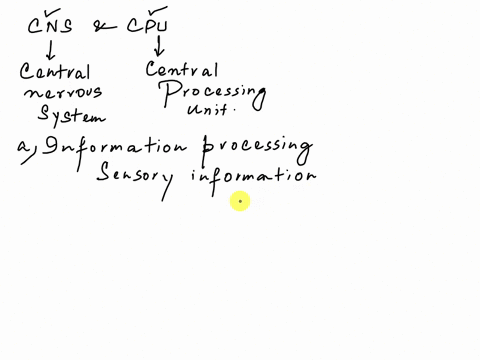 CNS & CPU
Central nervous System
Central Processing Unit.
a, Information processing
Sensory information